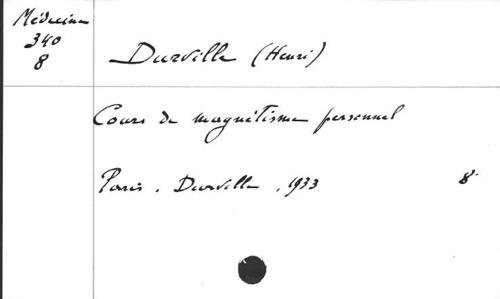 Médecine
340
8
Durville (Henri)
Cours de magnétisme personnel
Paris. Durville, 1933 8°